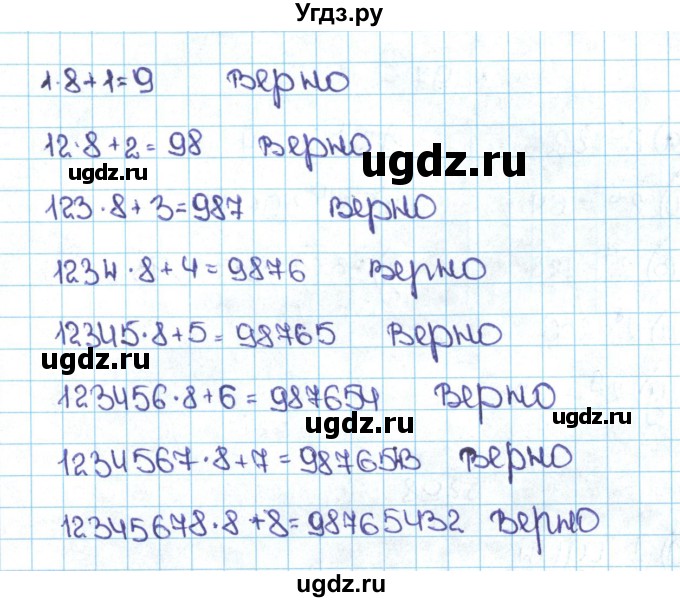 Угдз.ру
1·8+1=9 Верно
12·8+2=98 Верно
ugdz.ru
ugdz.ru
123·8+3=987 Верно
1234·8+4=9876 Верно
12345·8+5=98765 Верно
ugdz.ru
123456·8+6=987654 Верно
ugdz.ru
ugdz.ru
1234567·8+7=9876543 Верно
12345678·8+8=98765432 Верно
ugdz.ru
ugdz.ru